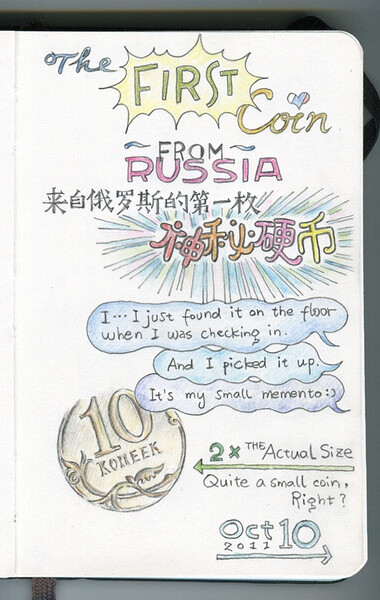 The
FIRST
Coin
~FROM~
RUSSIA
来自俄罗斯的第一枚
神秘硬币
I... I just found it on the floor
when I was checking in.
And I picked it up.
It's my small memento:)
10
КОПЕЕК
2× THE Actual Size
Quite a small coin,
Right?
Oct 10
2011